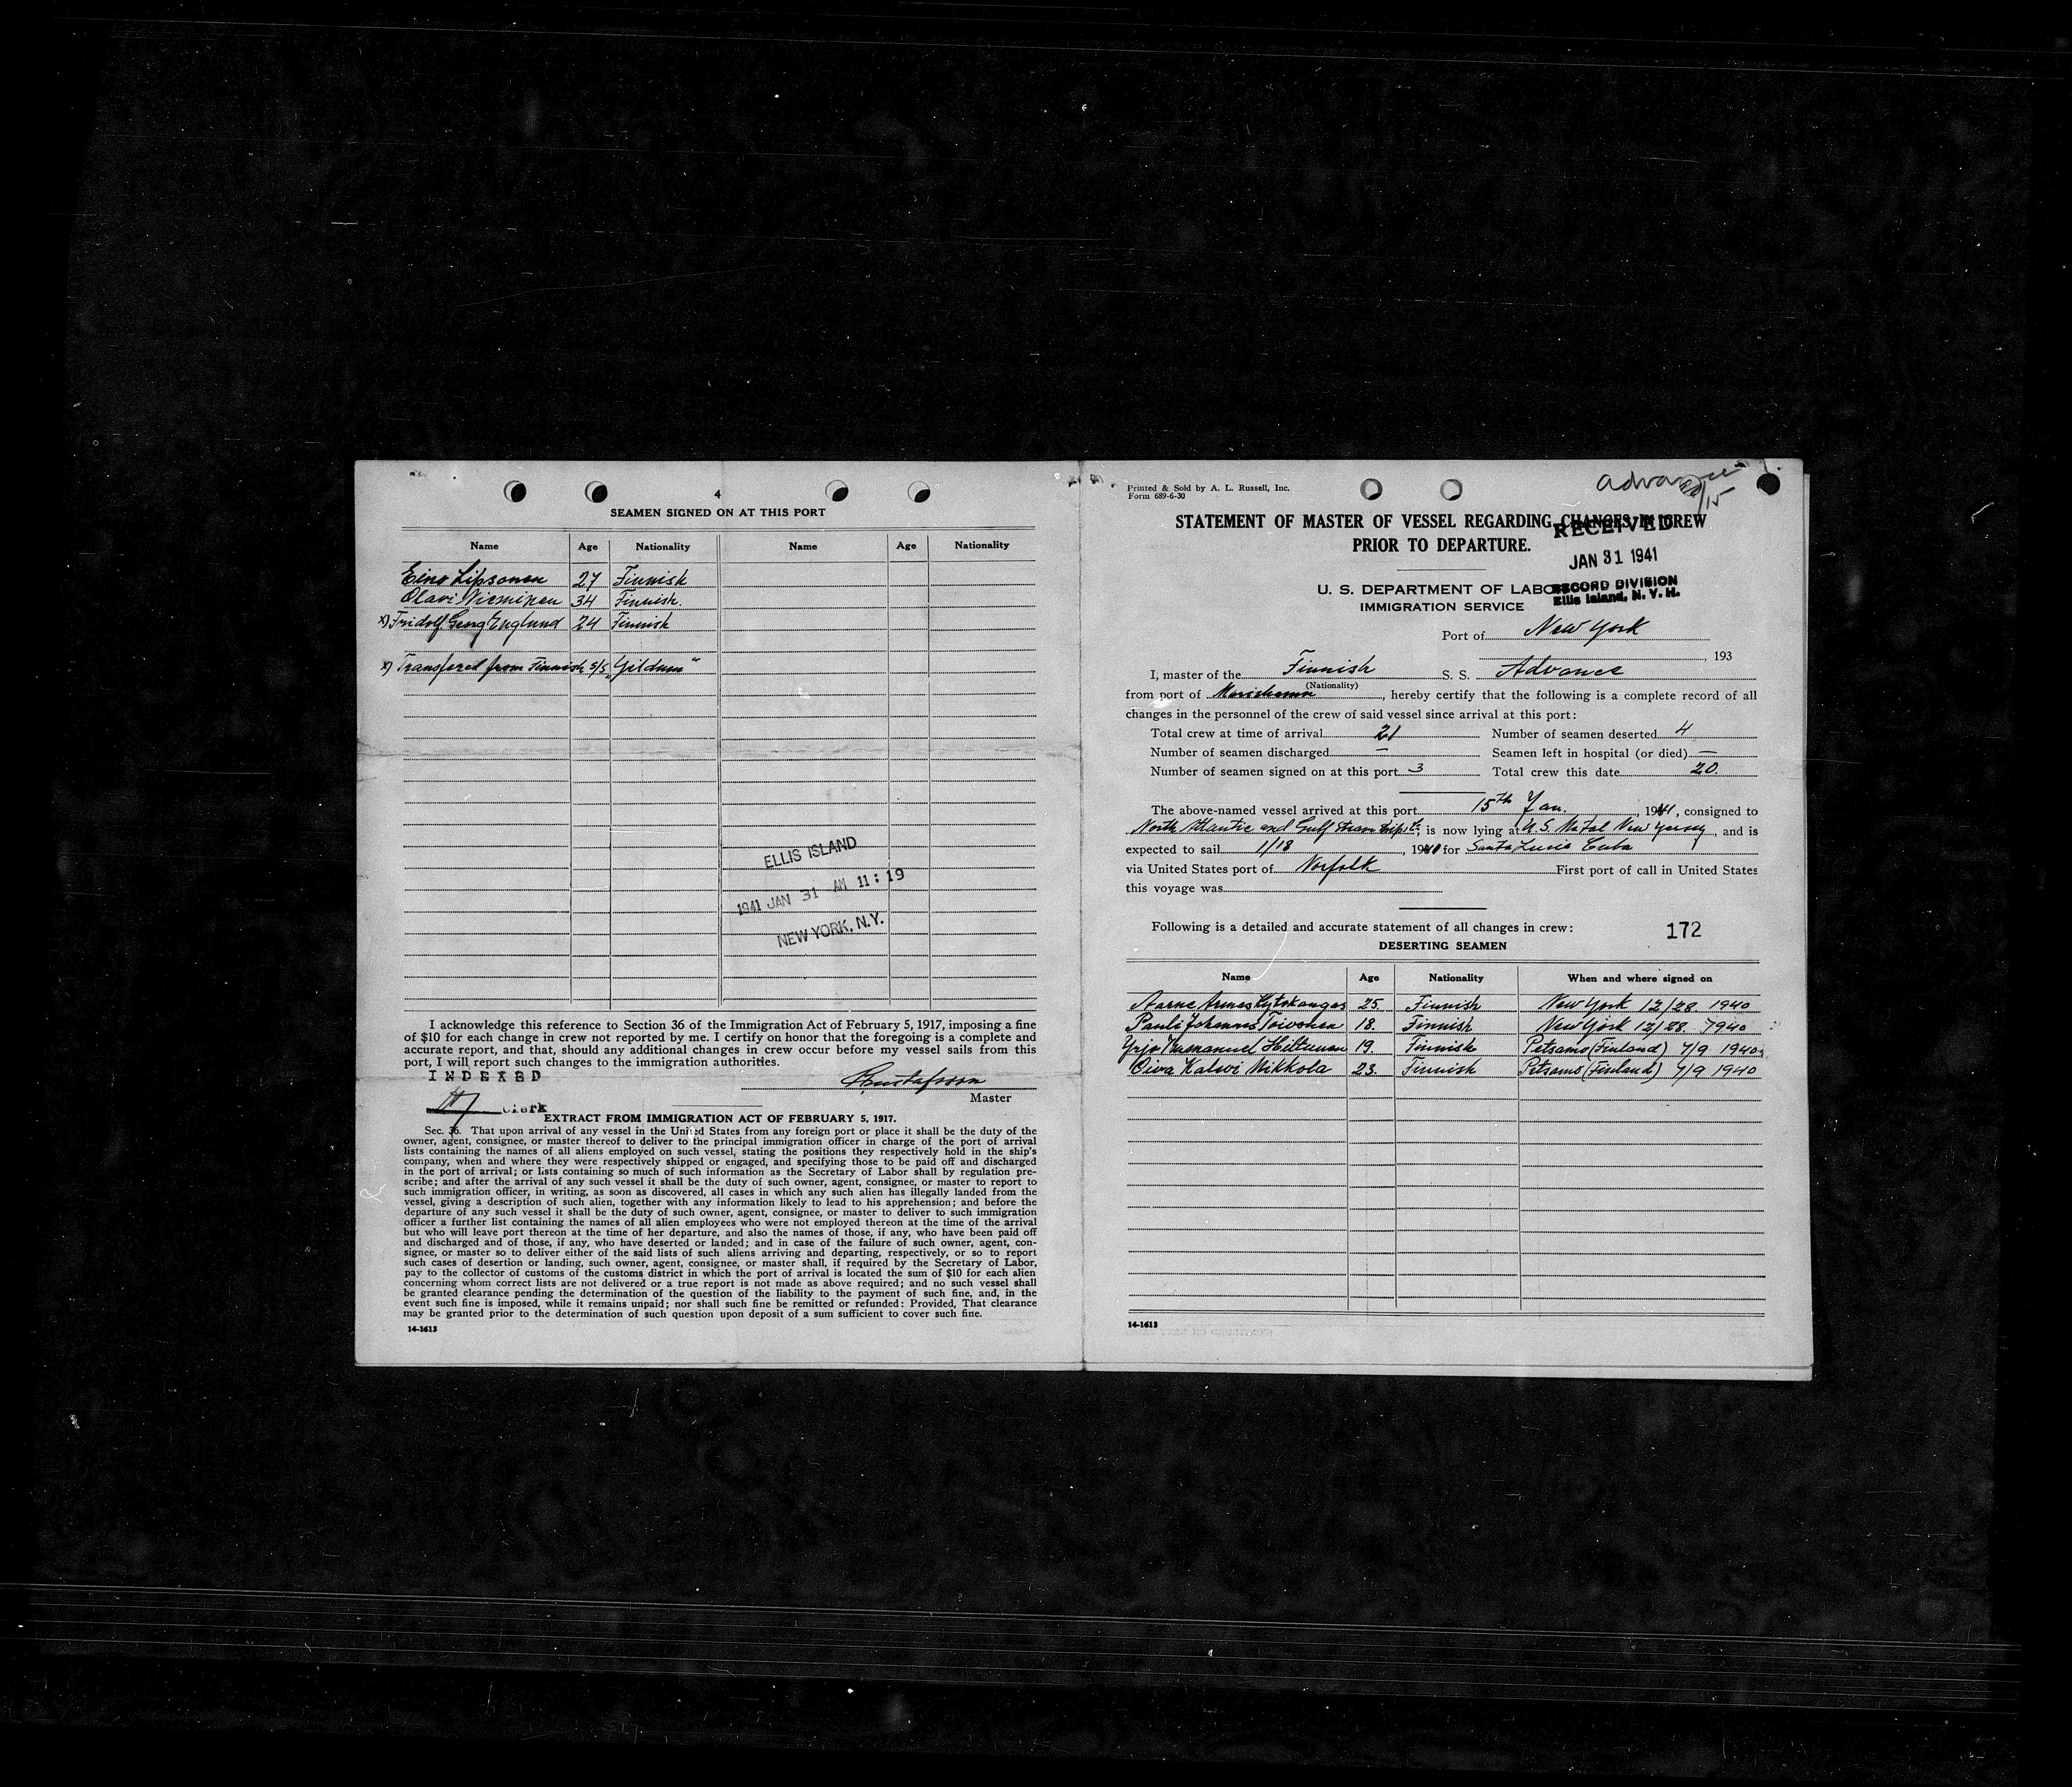 4
SEAMEN SIGNED ON AT THIS PORT
Name Age Nationality Name Age Nationality
Eino Lipsonen 27 Finnish
Olavi Nieminen 34 Finnish.
x) Fridolf Georg Englund 24 Finnish
x) Transfered from Finnish s/s "Gildum"
ELLIS ISLAND
1941 JAN 31 AM 11:19
NEW YORK, N.Y.
I acknowledge this reference to Section 36 of the Immigration Act of February 5, 1917, imposing a fine
of $10 for each change in crew not reported by me. I certify on honor that the foregoing is a complete and
accurate report, and that, should any additional changes in crew occur before my vessel sails from this
port, I will report such changes to the immigration authorities.
INDEXED
Gustafsson
Master
Clerk
EXTRACT FROM IMMIGRATION ACT OF FEBRUARY 5, 1917.
Sec. 36. That upon arrival of any vessel in the United States from any foreign port or place it shall be the duty of the
owner, agent, consignee, or master thereof to deliver to the principal immigration officer in charge of the port of arrival
lists containing the names of all aliens employed on such vessel, stating the positions they respectively hold in the ship's
company, when and where they were respectively shipped or engaged, and specifying those to be paid off and discharged
in the port of arrival; or lists containing so much of such information as the Secretary of Labor shall by regulation pre-
scribe; and after the arrival of any such vessel it shall be the duty of such owner, agent, consignee, or master to report to
such immigration officer, in writing, as soon as discovered, all cases in which any such alien has illegally landed from the
vessel, giving a description of such alien, together with any information likely to lead to his apprehension; and before the
departure of any such vessel it shall be the duty of such owner, agent, consignee, or master to deliver to such immigration
officer a further list containing the names of all alien employees who were not employed thereon at the time of the arrival
but who will leave port thereon at the time of her departure, and also the names of those, if any, who have been paid off
and discharged and of those, if any, who have deserted or landed; and in case of the failure of such owner, agent, con-
signee, or master so to deliver either of the said lists of such aliens arriving and departing, respectively, or so to report
such cases of desertion or landing, such owner, agent, consignee, or master shall, if required by the Secretary of Labor,
pay to the collector of customs of the customs district in which the port of arrival is located the sum of $10 for each alien
concerning whom correct lists are not delivered or a true report is not made as above required; and no such vessel shall
be granted clearance pending the determination of the question of the liability to the payment of such fine, and, in the
event such fine is imposed, while it remains unpaid; nor shall such fine be remitted or refunded: Provided, That clearance
may be granted prior to the determination of such question upon deposit of a sum sufficient to cover such fine.
14-1613
Printed & Sold by A. L. Russell, Inc.
Form 689-6-30
Advance
1/15
STATEMENT OF MASTER OF VESSEL REGARDING CHANGES IN CREW
PRIOR TO DEPARTURE.
RECEIVED
JAN 31 1941
RECORD DIVISION
Ellis Island, N. Y. H.
U. S. DEPARTMENT OF LABOR
IMMIGRATION SERVICE
Port of New York
, 193
I, master of the Finnish S. S. Advance
(Nationality)
from port of Mariehamn, hereby certify that the following is a complete record of all
changes in the personnel of the crew of said vessel since arrival at this port:
Total crew at time of arrival 21 Number of seamen deserted 4
Number of seamen discharged — Seamen left in hospital (or died) —
Number of seamen signed on at this port 3 Total crew this date 20.
The above-named vessel arrived at this port 15th Jan., 1941, consigned to
North Atlantic and Gulf steamship Co, is now lying at U.S. Metal New Yersey, and is
expected to sail 1/18, 1941 for Santa Lucia Cuba
via United States port of Norfolk First port of call in United States
this voyage was
Following is a detailed and accurate statement of all changes in crew: 172
DESERTING SEAMEN
Name Age Nationality When and where signed on
Aarne Armas Kytökangas 25. Finnish New York 12/28. 1940
Pauli Johannes Toivonen 18. Finnish New York 12/28. 1940
Yrjö Immanuel Hiltunen 19. Finnish Petsamo (Finland) 7/9 1940
Oiva Kalevi Mikkola 23. Finnish Petsamo (Finland) 7/9 1940
14-1613